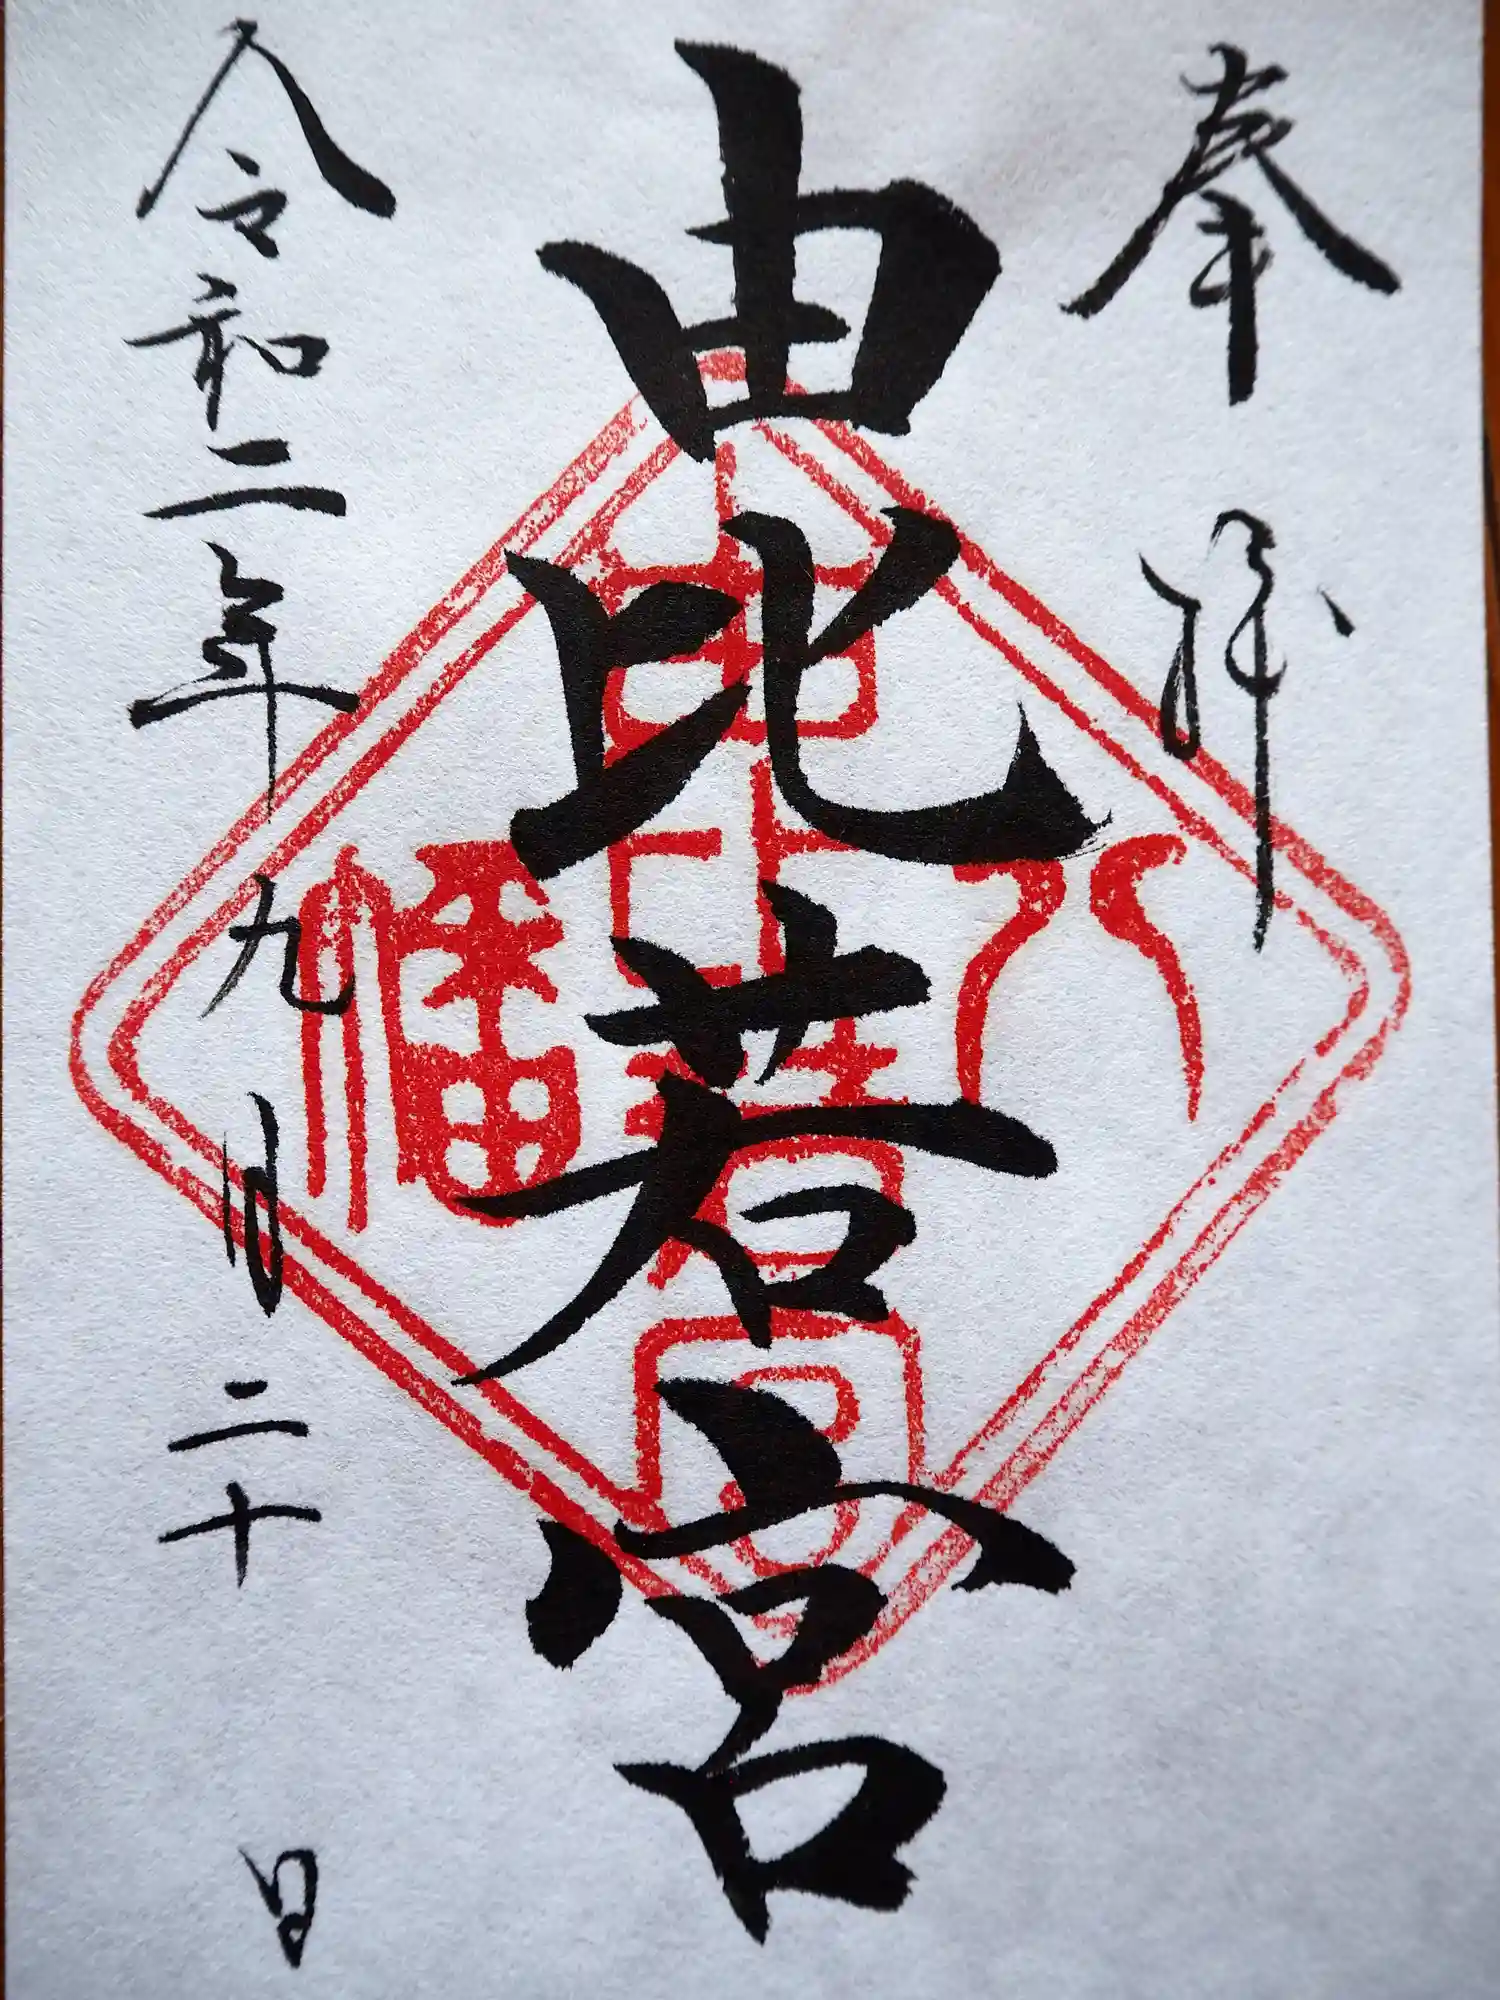 奉拝
由比若宮
令和二年九月二十日
八幡
由比若宮